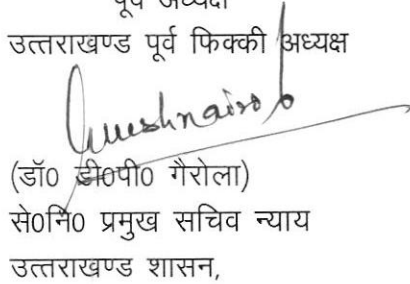 पूर्व अध्यक्ष
उत्तराखण्ड पूर्व फिक्की अध्यक्ष
(डॉ0 डी0पी0 गैरोला)
से0नि0 प्रमुख सचिव न्याय
उत्तराखण्ड शासन,